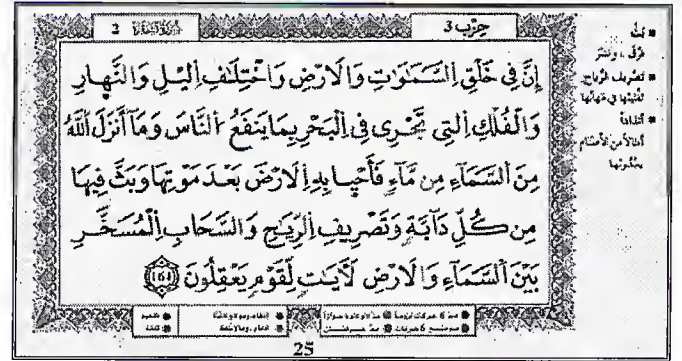 حِزْب 3
2
إِنَّ فِى خَلْقِ اِلسَّمَٰوَٰتِ وَالَارْضِ وَاخْتِلَٰفِ اِليْلِ وَالنَّهارِ
وَالْفُلْكِ اِلتِى تَجْرِى فِى اِلْبَحْرِ بِمَا يَنفَعُ اُلنَّاسَ وَمَآ أَنزَلَ اَللَّهُ
مِنَ اَلسَّمَآءِ مِن مَّآءٖ فَأَحْيــا بِهِ اِلَارْضَ بَعْدَ مَوْتِهَا وَبَثَّ فِيهَا
مِن كُلِّ دَآبَّةٖ وَتَصْرِيفِ اِلرِّيَٰحِ وَالسَّحَابِ اِلْمُسَخَّرِ
بَيْنَ اَلسَّمَآءِ وَالَارْضِ لَأٓيَٰتٖ لِّقَوْمٖ يَعْقِلُونَ
بَثَّ
فرّق ، ونشر
تصريف الرياح
تقليبها في مهابّها
أنداداً
أمثالاً من الأصنام
يعبدونها
25